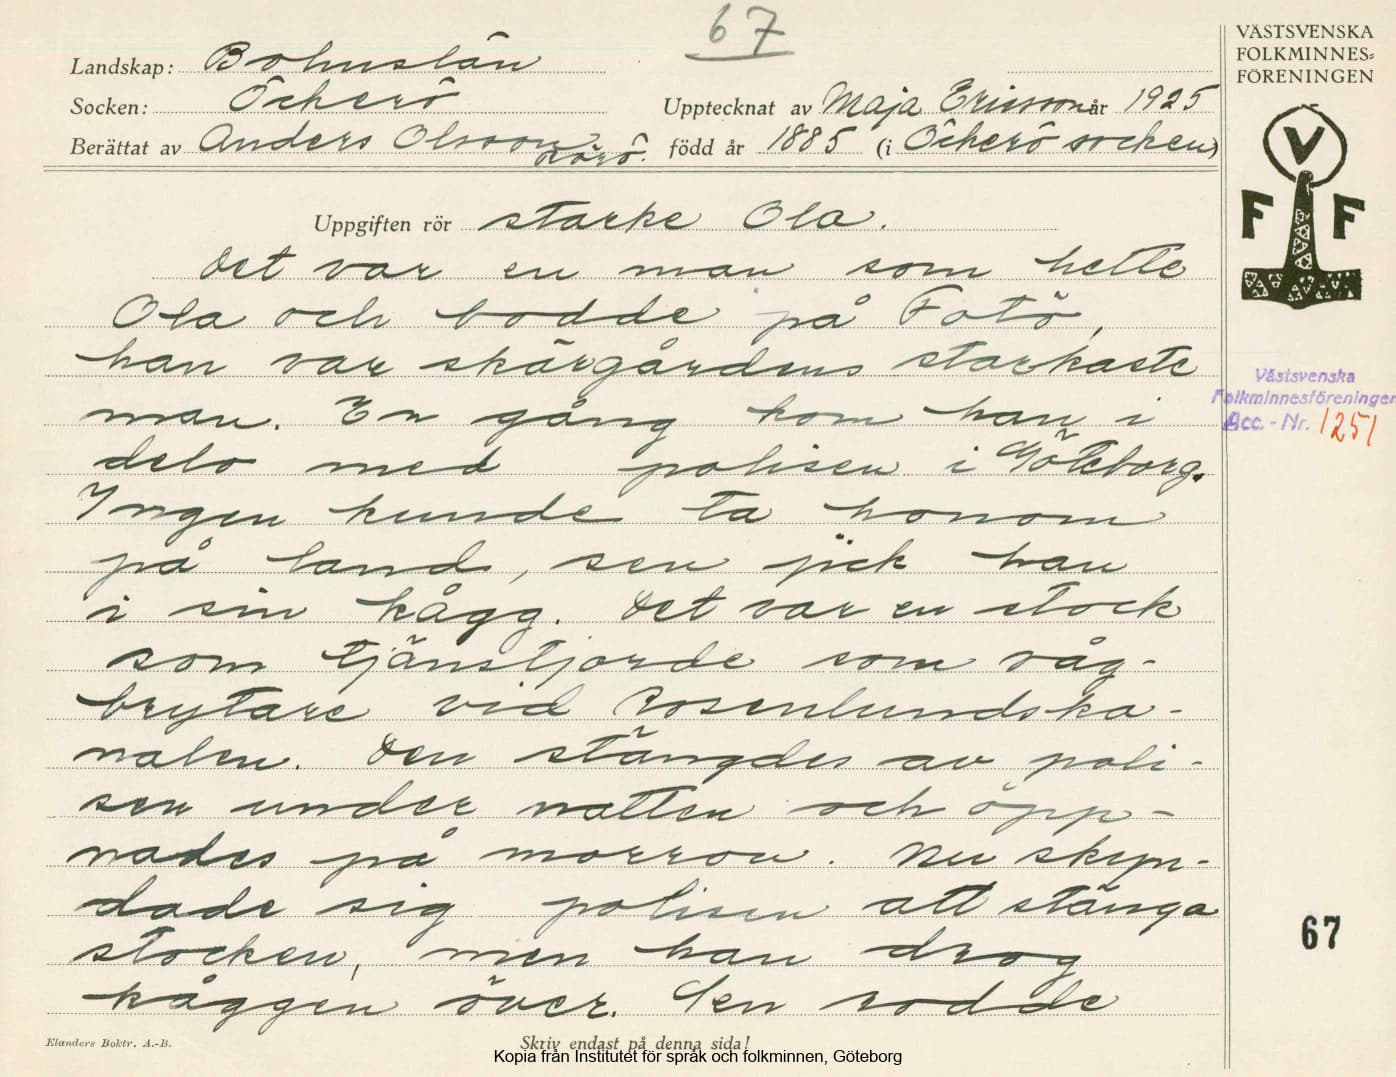 67
VÄSTSVENSKA
FOLKMINNES=
FÖRENINGEN
Landskap: Bohuslän
Socken: Öckerö
Upptecknat av Maja Ericsson år 1925
Berättat av Anders Olsson Rörö. född år 1885 (i Öckerö socken)
V
F F
Uppgiften rör starke Ola.
Det var en man som hette
Ola och bodde på Fotö,
han var skärgårdens starkaste
man. En gång kom han i
delo med polisen i Göteborg.
Ingen kunde ta honom
på land, sen jick han
i sin kågg. Det var en stock
som tjänstjorde som våg-
brytare vid Rosenlundska-
nalen. Den stängdes av poli-
sen under natten och öpp-
nades på morron. Nu skyn-
dade sig polisen att stänga
stocken, men han drog
kåggen över. Sen rodde
Västsvenska
Folkminnesföreningen
Acc. - Nr. 1251
67
Elanders Boktr. A.-B.
Skriv endast på denna sida!
Kopia från Institutet för språk och folkminnen, Göteborg